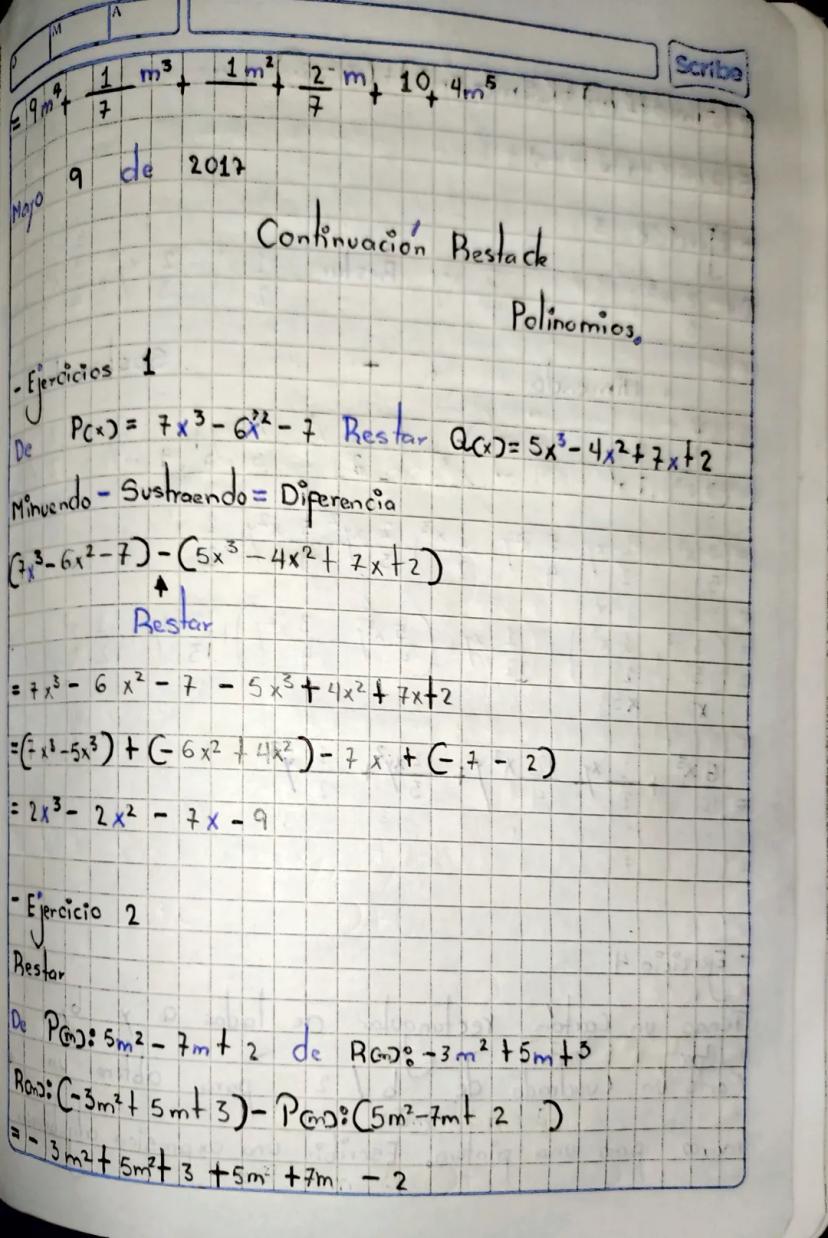 M A
Scribe
= 9m⁴ + 1/7 m³ + 1m² + 2/7 m + 10 + 4m⁵
Mayo 9 de 2017
Continuación Resta de
Polinomios.
- Ejercicios 1
De P(x) = 7x³ - 6x² - 7 Restar Q(x) = 5x³ - 4x² + 7x + 2
Minuendo - Sustraendo = Diferencia
(7x³ - 6x² - 7) - (5x³ - 4x² + 7x + 2)
Restar
= 7x³ - 6x² - 7 - 5x³ + 4x² + 7x + 2
= (7x³ - 5x³) + (- 6x² + 4x²) - 7x + (- 7 - 2)
= 2x³ - 2x² - 7x - 9
- Ejercicio 2
Restar
De P(m): 5m² - 7m + 2 de R(m): -3m² + 5m + 3
R(m): (-3m² + 5m + 3) - P(m): (5m² - 7m + 2)
= - 3m² + 5m² + 3 + 5m + 7m - 2